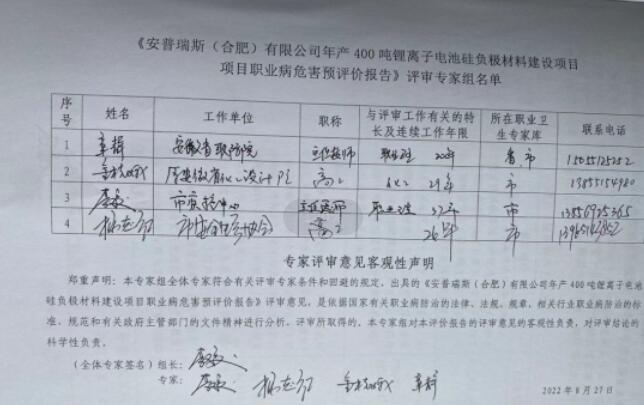 《安普瑞斯（合肥）有限公司年产400吨锂离子电池硅负极材料建设项目
项目职业病危害预评价报告》评审专家组名单
序号 姓名 工作单位 职称 与评审工作有关的特长及连续工作年限 所在职业卫生专家库 联系电话
1 安徽省职防院 主任技师 职业卫生 20年 省、市
2 高工 化工 29年 市 13855154980
3 主任医师 职业卫生 37年 市 13856925365
4 高工 26年 市
专家评审意见客观性声明
郑重声明：本专家组全体专家符合有关评审专家条件和回避的规定，出具的《安普瑞斯（合肥）有限公司年产400吨锂离子电池
硅负极材料建设项目职业病危害预评价报告》评审意见，是依据国家有关职业病防治的法律、法规、规章、相关行业职业病防治的标
准、规范和有关政府主管部门的文件精神进行分析、评审所取得的。本专家组对本评价报告的评审意见的客观性负责，对评审结论的
科学性负责。
（全体专家签名）组长：
专家：
2022年8月27日